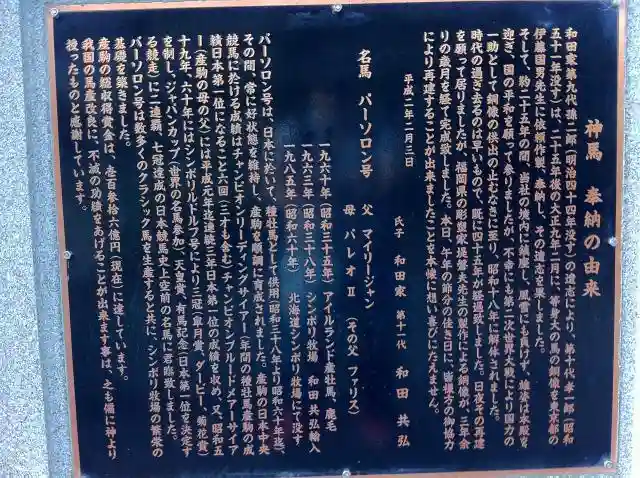 神馬 奉納の由来
和田家第九代孫二郎(明治四十四年没す)の遺志により、第十代孝一郎(昭和
五十一年没す)は、二十五年後の大正九年二月に、等身大の馬の銅像を東京都の
伊藤国男先生に依頼作製、奉納し、その遺志を果しました。
そして、約二十五年の間、当社の境内に鎮座し、風雪にも負けず、雄姿は氏子を
迎え、国の平和を願って参りましたが、不幸にも第二次世界大戦により国力の
一助として銅像の供出の止むなきに至り、昭和十八年に解体されました。
時代の過ぎ去るのは早いもので、既に四十五年が経過致しました。日夜その再建
を願って居りましたが、福岡県の彫塑家堤督夫先生の製作による銅像が、三年余
りの歳月を経て完成致しました。本日、午年の節分の佳き日に、皆様方の御協力
により再建することが出来ましたことを本懐に想い喜びにたえません。
平成二年二月三日
氏子 和田家 第十一代 和田 共弘
名馬 パーソロン号 父 マイリージャン
母 パレオⅡ (その父 ファリス)
一九六十年(昭和三十五年)アイルランド産牡馬、鹿毛
一九六三年(昭和三十八年)シンボリ牧場 和田共弘輸入
一九八五年(昭和六十年) 北海道シンボリ牧場にて没す
パーソロン号は、日本に於いて、種牡馬として供用(昭和三十八年より昭和六十年迄)、
その間、常に好状態を維持し、産駒も順調に育成されました。産駒の日本中央
競馬に於ける成績はチャンピオンリーディングサイアー(年間の種牡馬産駒の成
績日本第一位になること)六回(三才も含む)チャンピオンブルードメアーサイア
ー(産駒の母の父)には平成元年迄連続三年日本第一位の成績を収め、又、昭和五
十九年、六十年にはシンボリルドルフ号により三冠(皐月賞、ダービー、菊花賞)
を制し、ジャパンカップ(世界の名馬参加)、天皇賞、有馬記念(日本第一位を決定す
る競走)に二連覇、七冠達成の日本競馬史上空前の名馬に君臨致しました。
パーソロン号は数多くのクラシック馬を生産すると共に、シンボリ牧場の繁栄の
基礎を築きました。
産駒の総収得賞金は、壱百参拾八億円(現在)に達しています。
我国の馬産改良に、不滅の功績をあげることが出来ます事は、之も偏に神より
授ったものと感謝しています。